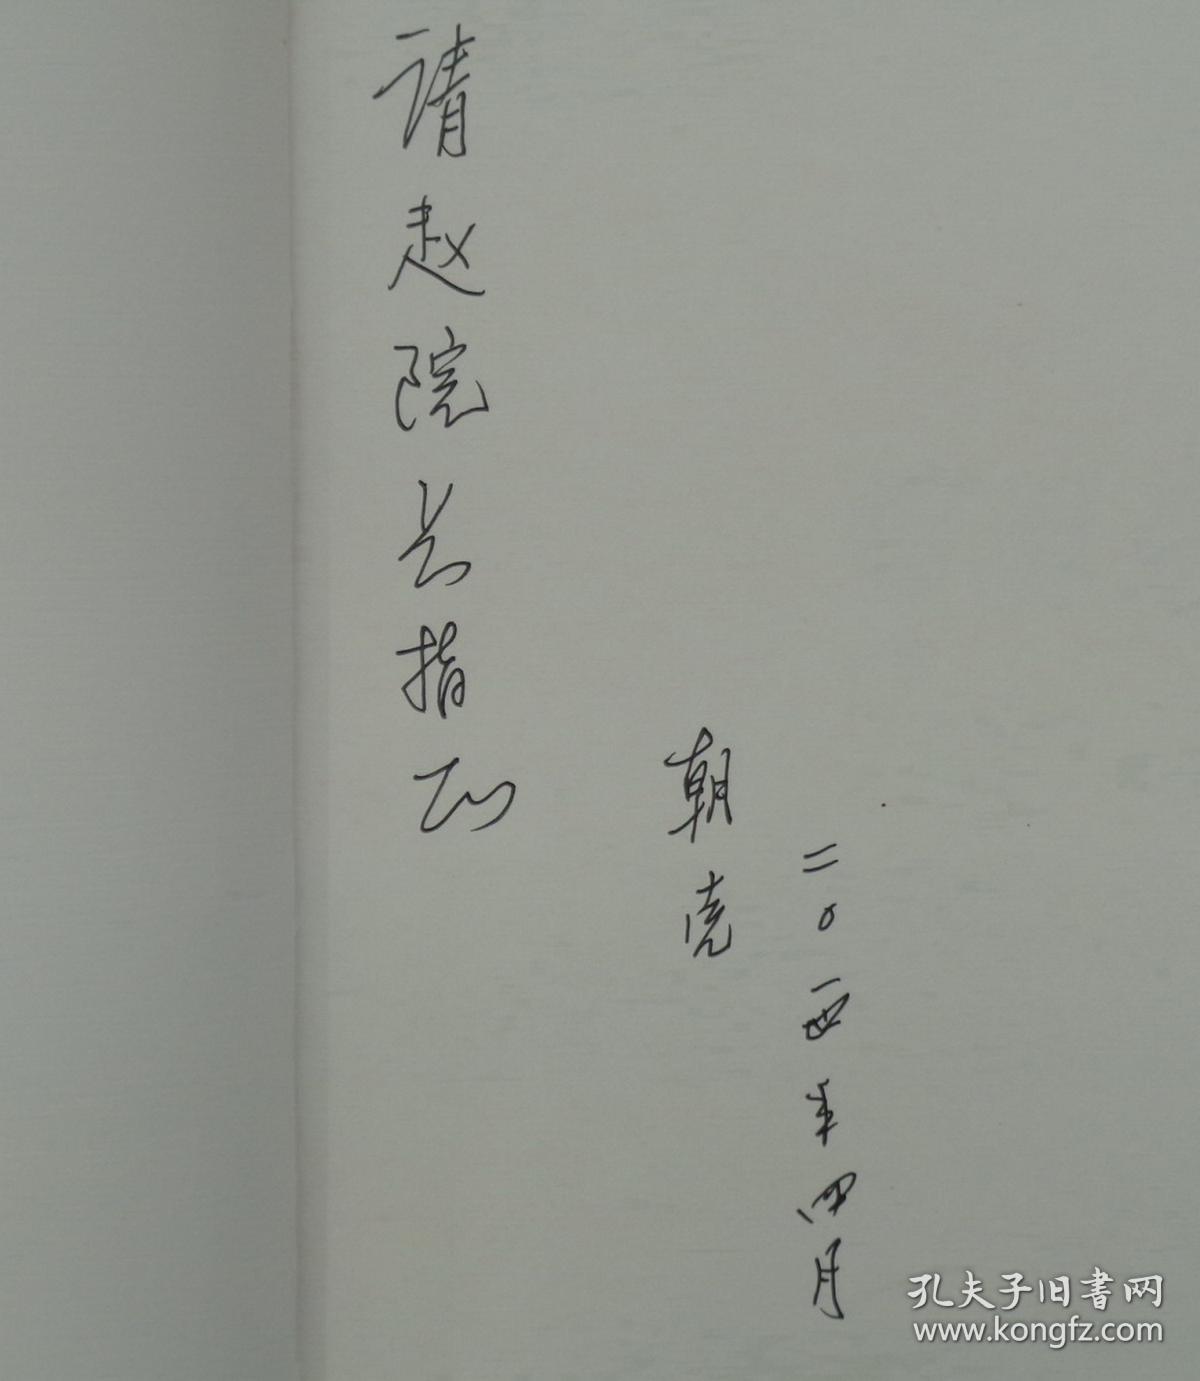 请赵院长指正
朝
二〇一四年四月
孔夫子旧书网
www.kongfz.com